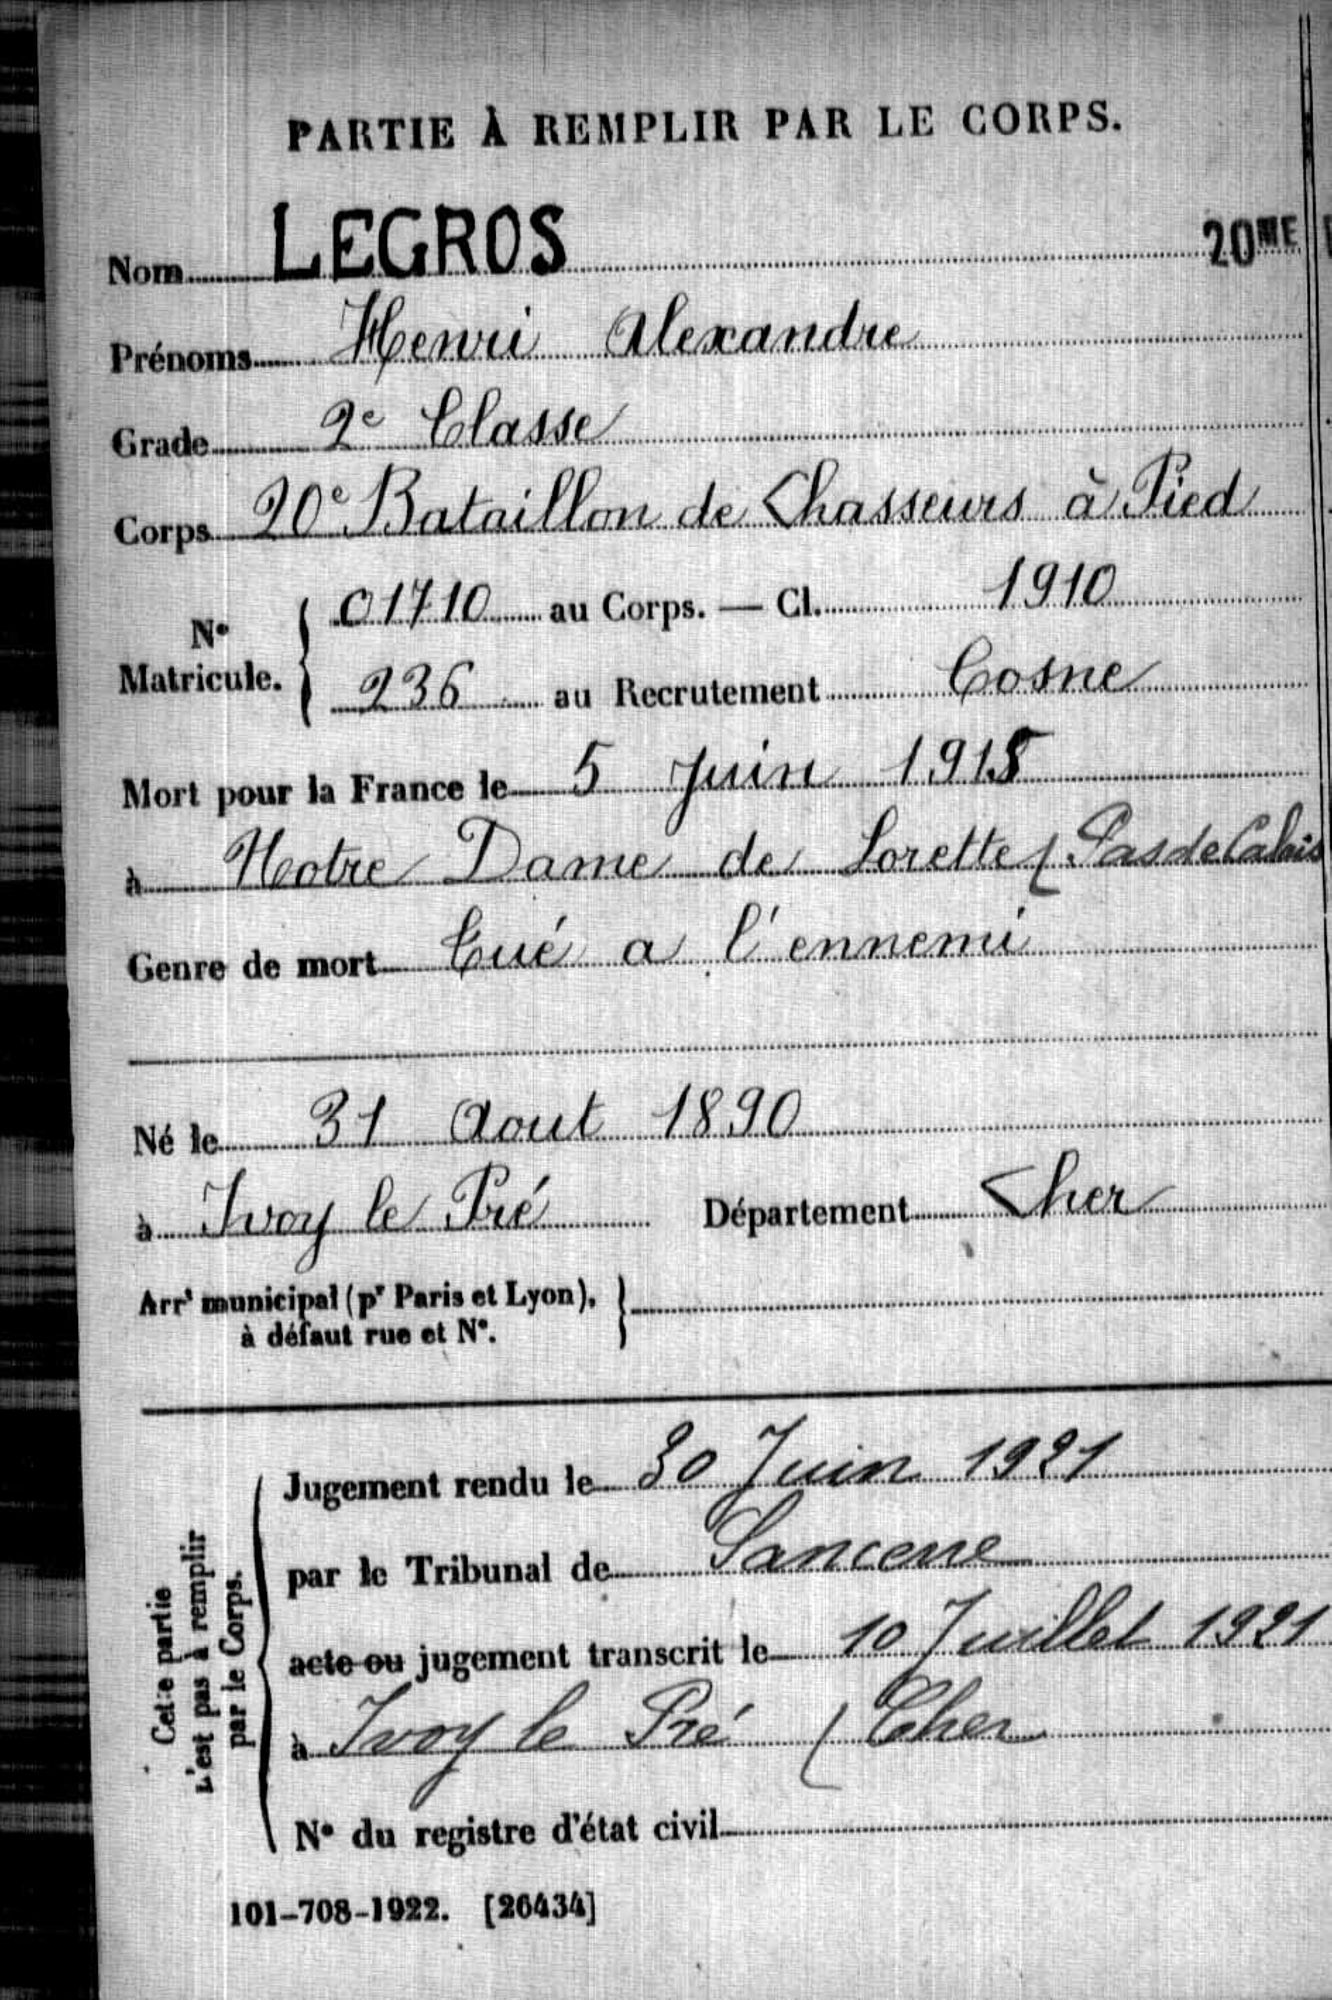 PARTIE À REMPLIR PAR LE CORPS.
Nom LEGROS 20ME
Prénoms Henri Alexandre
Grade 2e Classe
Corps 20e Bataillon de Chasseurs à Pied
No Matricule. { 01710 au Corps. — Cl. 1910
236 au Recrutement Cosne
Mort pour la France le 5 Juin 1915
à Notre Dame de Lorette ( Pas de Calais
Genre de mort Tué a l'ennemi
Né le 31 Aout 1890
à Ivoy le Pré Département Cher
Arrt municipal (pr Paris et Lyon), }
à défaut rue et No.
Cette partie
n'est pas à remplir
par le Corps.
Jugement rendu le 30 Juin 1921
par le Tribunal de Sancerre
acte ou jugement transcrit le 10 Juillet 1921
à Ivoy le Pré ( Cher
No du registre d'état civil
101-708-1922. [26434]